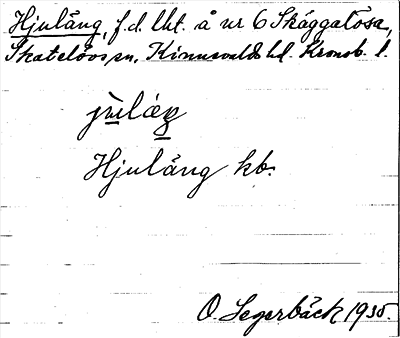 Hjuläng, f.d. lht. å nr 6 Skäggalösa,
Skatelövs sn, Kinnevalds hd. Kronob. l.
jùláŋ
Hjuläng kb.
O. Segerbäck 1935.